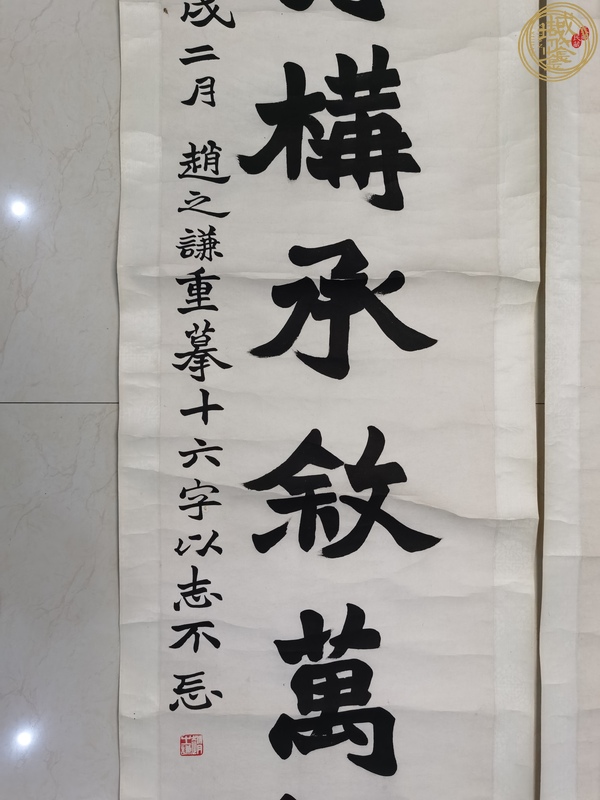 構承敘萬
戌二月 趙之謙重摹十六字以志不忘